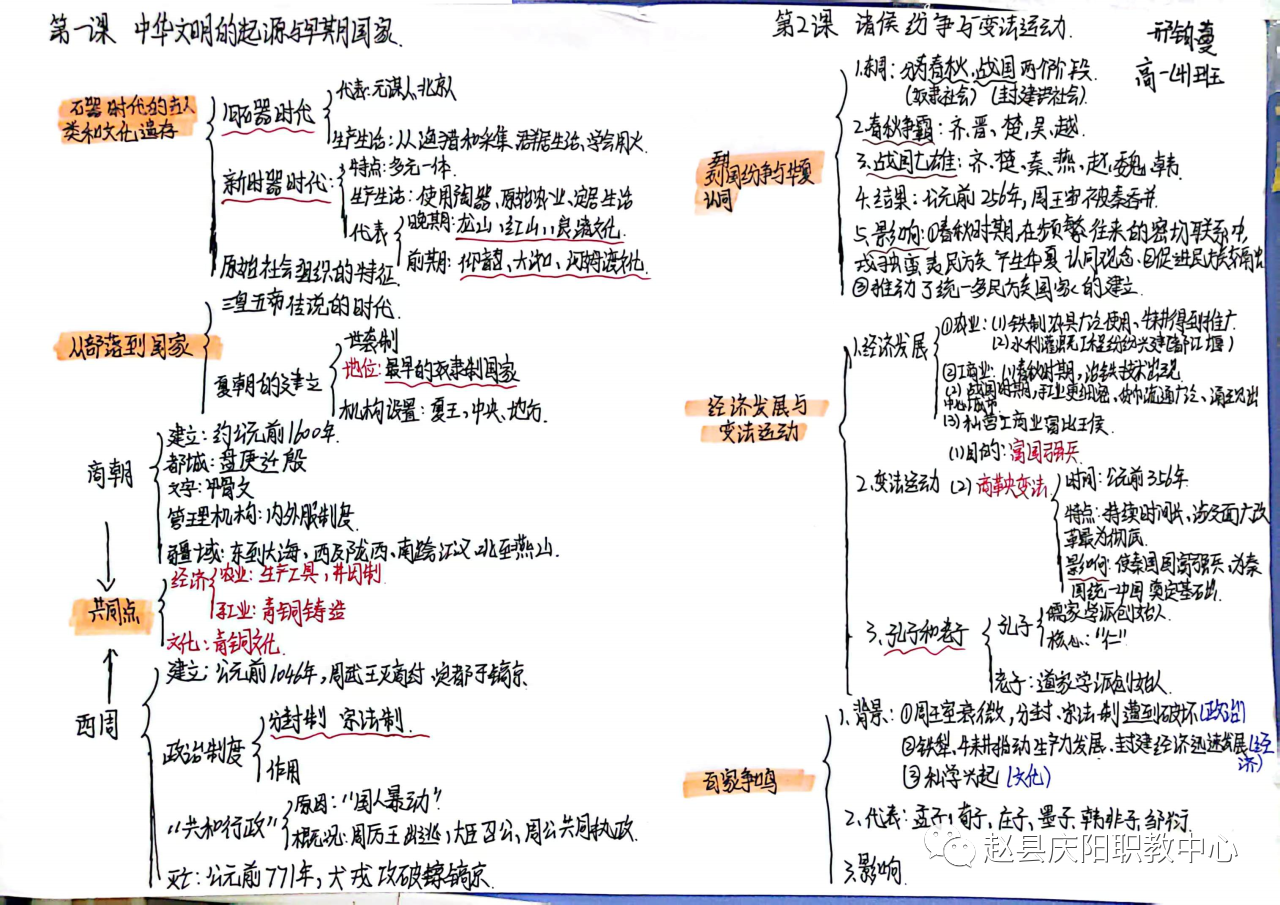 第一课 中华文明的起源与早期国家.
石器时代的古人
类和文化遗存
旧石器时代
代表:元谋人、北京人
生产生活:从渔猎和采集,群居生活、学会用火.
新时器时代:
特点:多元一体.
生产生活:使用陶器、原始农业、定居生活
代表
晚期:龙山、红山、良渚文化.
前期:仰韶、大汶口、河姆渡文化.
原始社会组织的特征.
从部落到国家
三皇五帝传说的时代.
夏朝的建立
世袭制
地位:最早的奴隶制国家
机构设置:夏王,中央、地方.
商朝
建立:约公元前1600年.
都城:盘庚迁殷
文字:甲骨文
管理机构:内外服制度.
疆域:东到大海,西及陇西、南跨江汉、北至燕山.
共同点
经济
农业:生产工具,井田制
手工业:青铜铸造
文化:青铜文化.
西周
建立:公元前1046年,周武王灭商纣、定都于镐京.
政治制度
分封制 宗法制.
作用
"共和行政"
原因:"国人暴动".
概况:周厉王出逃,大臣召公、周公共同执政.
灭亡:公元前771年,犬戎攻破镐京.
第2课 诸侯纷争与变法运动.
高一(4)班
列国纷争与华夏
认同
1.东周:分为春秋,战国两个阶段.
(奴隶社会) (封建社会).
2.春秋争霸:齐、晋、楚、吴、越.
3.战国七雄:齐、楚、秦、燕、赵、魏、韩.
4.结果:公元前256年,周王室被秦吞并.
5.影响:①春秋时期,在频繁往来的密切联系中,
戎狄蛮夷民族产生华夏认同观念、
③推动了统一多民族国家的建立.
经济发展与
变法运动
1.经济发展
①农业:(1)铁制农具广泛使用、牛耕得到推广
(2)水利灌溉工程纷纷兴建(都江堰)
②工商业:(1)春秋时期,冶铁技术出现
(2)战国时期,手工业更细密,货币流通广泛、涌现出
中心城市
(3)私营工商业富比王侯.
2.变法运动
(1)目的:富国强兵
(2)商鞅变法
时间:公元前356年.
特点:持续时间长,涉及面广改
革最为彻底.
影响:使秦国国富强兵,为秦
国统一中国奠定基础.
3、孔子和老子
孔子
儒家学派创始人.
核心:"仁"
老子:道家学派创始人.
百家争鸣
1.背景:①周王室衰微,分封、宗法制遭到破坏(政治)
②铁犁,牛耕推动生产力发展、封建经济迅速发展(经
济)
③私学兴起(文化)
2、代表:孟子、荀子、庄子、墨子、韩非子、邹衍.
3.影响.
赵县庆阳职教中心